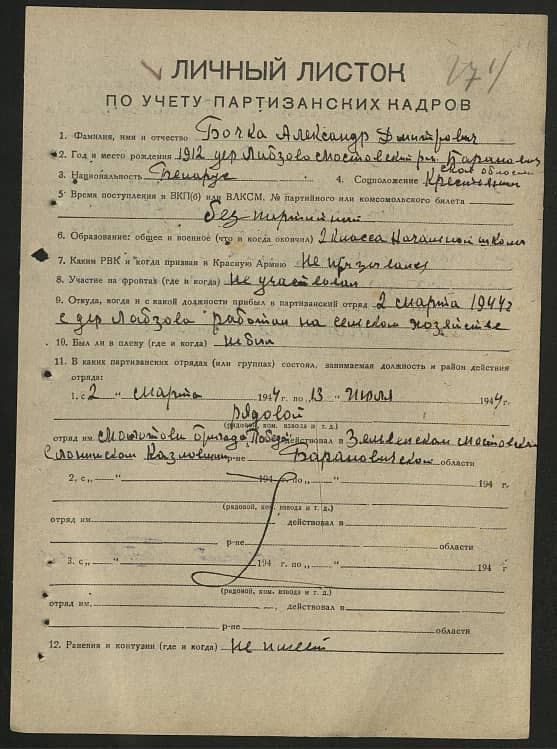 ЛИЧНЫЙ ЛИСТОК
ПО УЧЕТУ ПАРТИЗАНСКИХ КАДРОВ
1. Фамилия, имя и отчество Бочка Александр Дмитрович
2. Год и место рождения 1912 дер Лабзово Мостовский р-н Барановической области
3. Национальность Беларус 4. Соцположение Крестьянин
5. Время поступления в ВКП(б) или ВЛКСМ, № партийного или комсомольского билета
безпартийный
6. Образование: общее и военное (что и когда окончил) 2 класса начальной школы
7. Каким РВК и когда призван в Красную Армию Не призывался
8. Участие на фронтах (где и когда) Не участвовал
9. Откуда, когда и с какой должности прибыл в партизанский отряд 2 марта 1944г
с дер Лабзова работал на сельском хозяйстве
10. Был ли в плену (где и когда) не был
11. В каких партизанских отрядах (или группах) состоял, занимаемая должность и район действия
отряда:
1. с „ 2 “ марта 1944 г. по „ 13 “ июля 1944 г.
рядовой
(рядовой, ком. взвода и т. д.)
отряд им. бригада "Победа" действовал в Зельвенском Мостовском
Слонимском Козловщин р-не Барановичской области
2. с „ “ 194 г. по „ “ 194 г.
(рядовой, ком. взвода и т. д.)
отряд им. действовал в
р-не области
3. с „ “ 194 г. по „ “ 194 г
(рядовой, ком. взвода и т. д.)
отряд им. действовал в
р-не области
12. Ранения и контузии (где и когда) не имеет